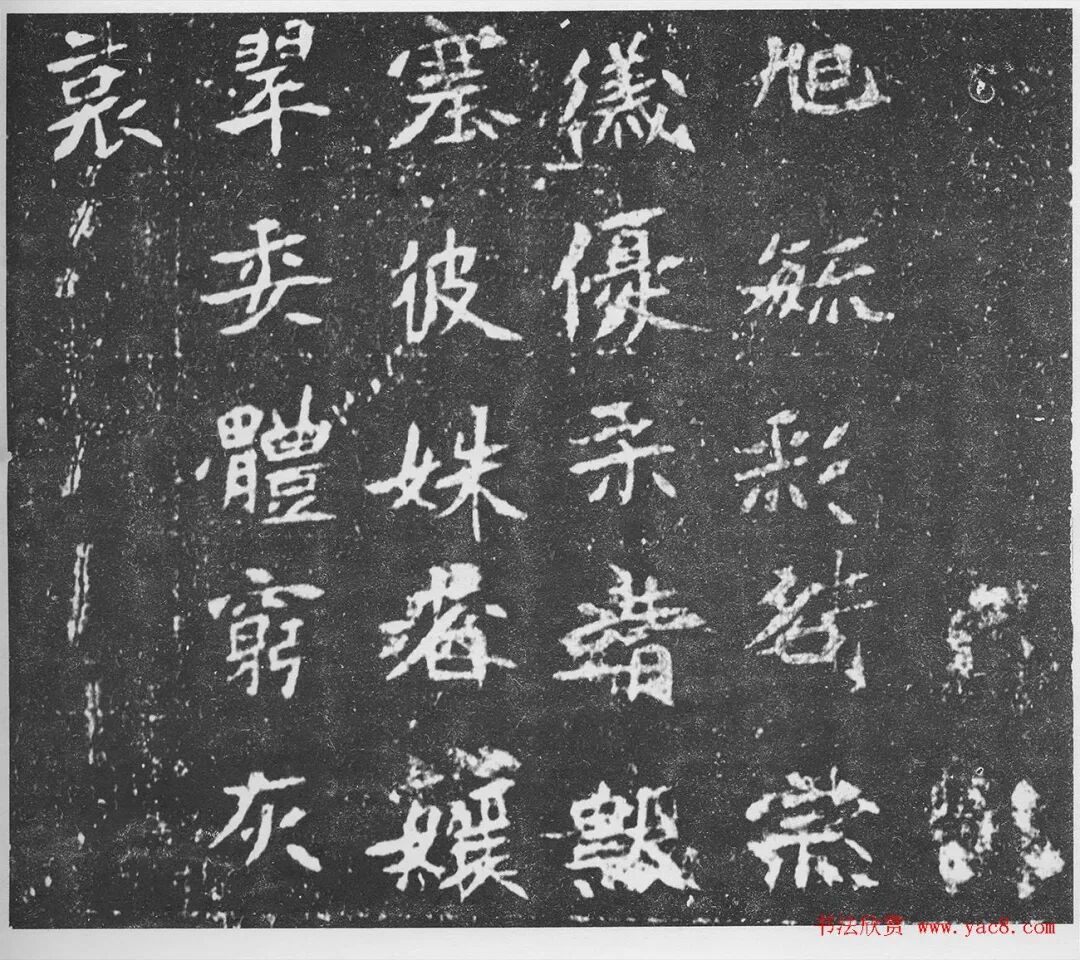 旭毓彩宗
儀優柔
塞彼姝者媛
翠委體窮灰
哀
书法欣赏 www.yac8.com